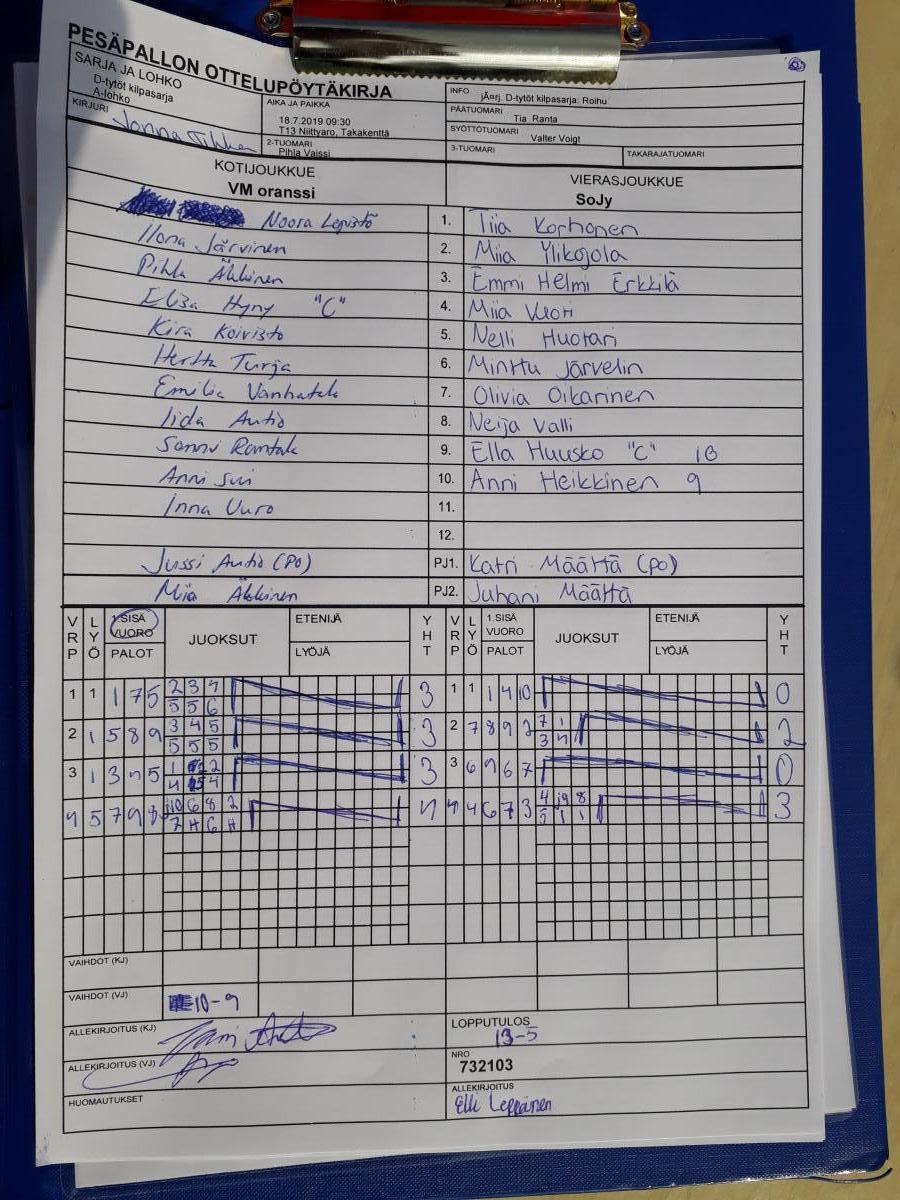 PESÄPALLON OTTELUPÖYTÄKIRJA
SARJA JA LOHKO
D-tytöt kilpasarja
A-lohko
KIRJURI
Jonna
AIKA JA PAIKKA
18.7.2019 09:30
T13 Niittyaro, Takakenttä
2-TUOMARI
Pihla Vaissi
INFO
jÄnrj. D-tytöt kilpasarja: Roihu
PÄÄTUOMARI
Tia Ranta
SYÖTTÖTUOMARI
Valter Voigt
3-TUOMARI
TAKARAJATUOMARI
KOTIJOUKKUE
VM oranssi
VIERASJOUKKUE
SoJy
Noora Lepistö 1. Tiia Korhonen
Ilona Järvinen 2. Miia Ylikojola
Pihla Äkkinen 3. Emmi Helmi Erkkilä
Elisa Hyny "C" 4. Miia Vuori
Kira Koivisto 5. Nelli Huotari
Hertta Turja 6. Minttu Järvelin
Emilia Vanhatalo 7. Olivia Oikarinen
Iida Autio 8. Neija Valli
Sanni Rantala 9. Ella Huusko "C" 10
Anni 10. Anni Heikkinen 9
Inna Uuro 11.
12.
Jussi Autio (PO) PJ1. Katri Määttä (PO)
Mia Äkkinen PJ2. Juhani Määttä
VRP LYÖ 1.SISÄ VUORO PALOT JUOKSUT ETENIJÄ LYÖJÄ YHT VRP LYÖ 1.SISÄ VUORO PALOT JUOKSUT ETENIJÄ LYÖJÄ YHT
1 1 1 7 5 2 3 4 3 1 1 1 4 10 0
5 5 6
2 1 5 8 9 3 4 5 3 2 7 8 9 2 7 1 2
5 5 5 3 4
3 1 3 4 5 1 2 3 3 6 9 6 7 0
4 4
4 5 7 9 8 j10 6 8 2 4 4 4 6 7 3 4 j9 8 3
7 H 6 H 5 1 1
VAIHDOT (KJ)
VAIHDOT (VJ)
10-9
ALLEKIRJOITUS (KJ)
ALLEKIRJOITUS (VJ)
HUOMAUTUKSET
LOPPUTULOS
13-5
NRO
732103
ALLEKIRJOITUS
Elli Leppänen